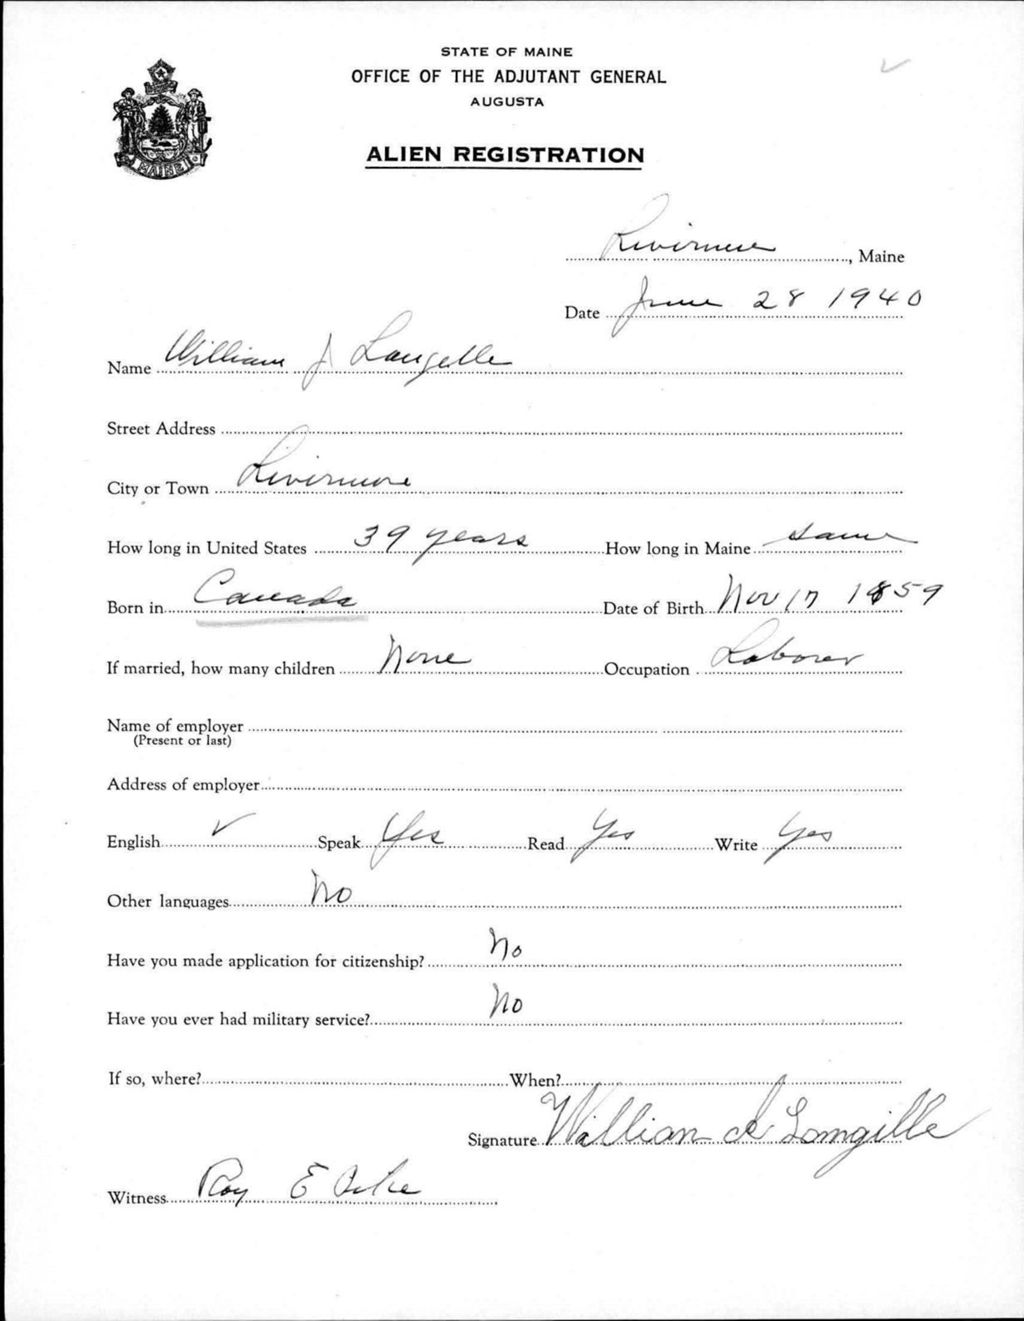 STATE OF MAINE
OFFICE OF THE ADJUTANT GENERAL
AUGUSTA
ALIEN REGISTRATION
MAINE
Livermore, Maine
Date June 28 1940
Name William J Langelle
Street Address
City or Town Livermore
How long in United States 39 years How long in Maine Same
Born in Canada Date of Birth Nov 17 1859
If married, how many children None Occupation Laborer
Name of employer
(Present or last)
Address of employer
English ✓ Speak Yes Read Yes Write Yes
Other languages No
Have you made application for citizenship? No
Have you ever had military service? No
If so, where? When?
Signature William J Longille
Witness Roy E